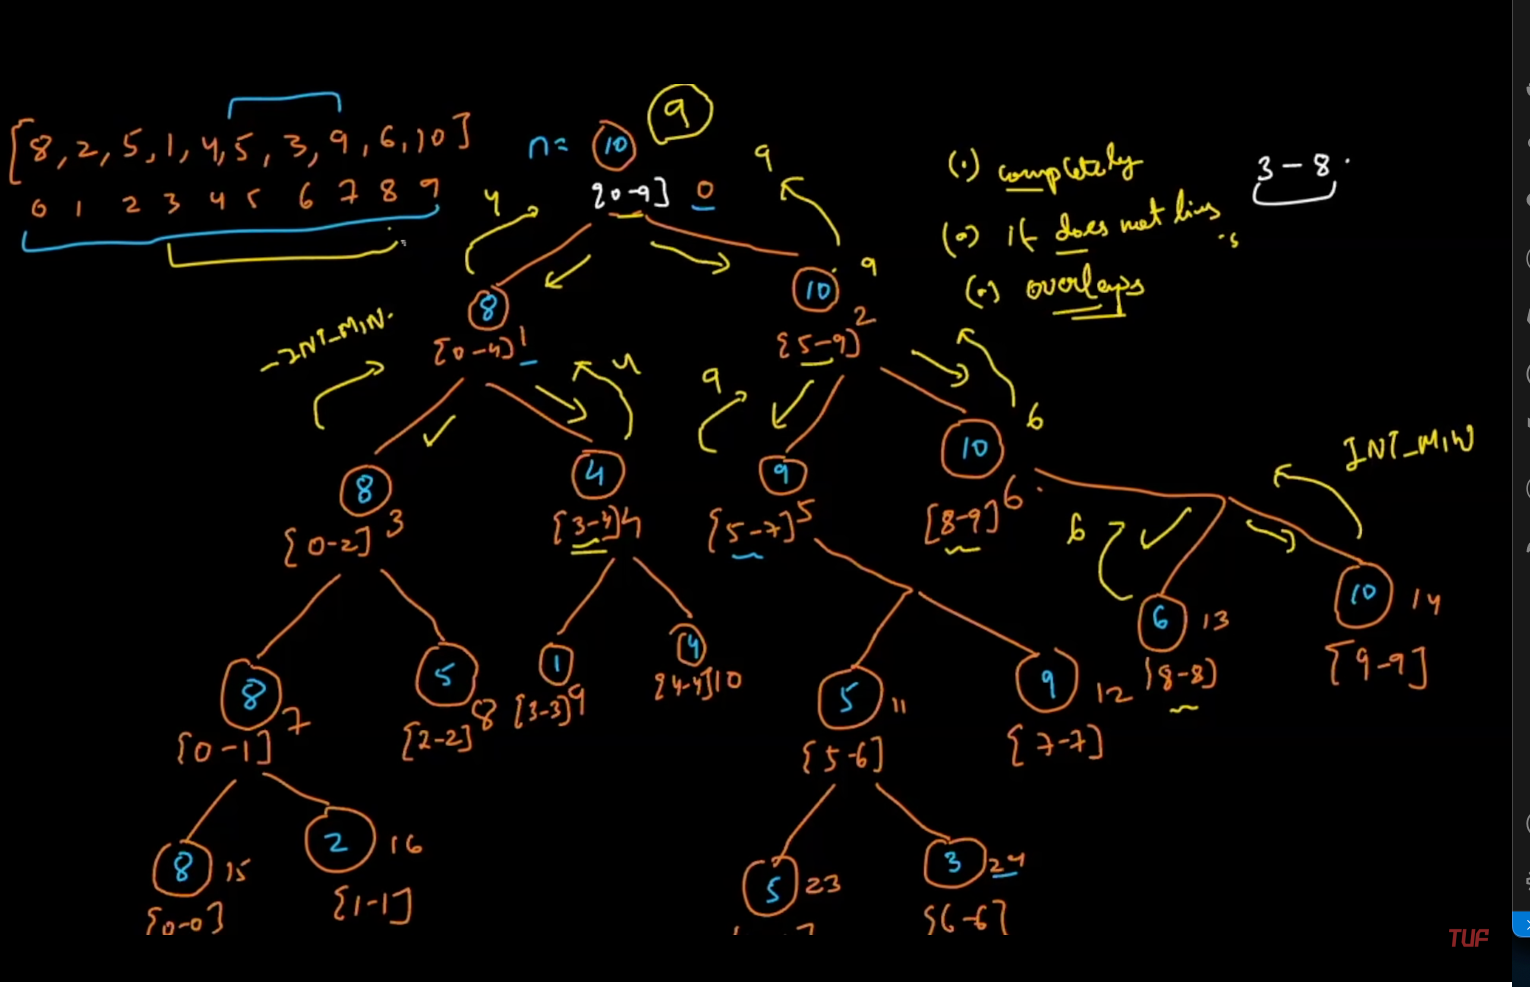 [8, 2, 5, 1, 4, 5, 3, 9, 6, 10]
0 1 2 3 4 5 6 7 8 9
n= 10 9
[0-9] 0
4
9
(.) completely
(.) if does not lies
(.) overlaps
3-8.
8
[0-4] 1
10 9
[5-9] 2
-INT_MIN.
4
9
6
INT_MIN
8
[0-2] 3
4
[3-4] 4
9
[5-7] 5
10
[8-9] 6.
6
8
[0-1] 7
5
[2-2] 8
1
[3-3] 9
4
[4-4] 10
5 11
[5-6]
9 12
[7-7]
6 13
[8-8]
10 14
[9-9]
8 15
[0-0]
2 16
[1-1]
5 23
3 24
[6-6]
TUF